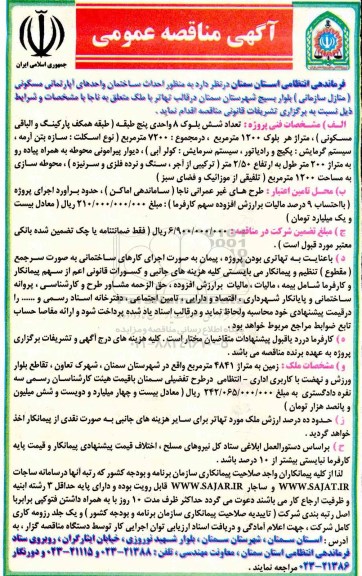 آگهی مناقصه عمومی
جمهوری اسلامی ایران
فرماندهی انتظامی استان سمنان درنظر دارد به منظور احداث ساختمان واحدهای آپارتمانی مسکونی
(منازل سازمانی) بلوار بسیج شهرستان سمنان درقالب تهاتر با ملک متعلق به ناجا با مشخصات و شرایط
ذیل نسبت به برگزاری تشریفات قانونی مناقصه اقدام نماید.
الف) مشخصات فنی پروژه: تعداد شش بلوک ۸ واحدی پنج طبقه (طبقه همکف پارکینگ و الباقی
مسکونی)، متراژ هر بلوک ۱۲۰۰ مترمربع، درمجموع: ۷۲۰۰ مترمربع (نوع اسکلت: سازه بتن آرمه،
سیستم گرمایش: پکیج و رادیاتور، سیستم سرمایش: کولر آبی)، دیوار پیرامونی محوطه به همراه پیاده رو
به متراژ ۲۰۰ متر طول به ارتفاع ۲/۵۰ متر (ترکیبی از آجر، سنگ و نرده فلزی و سرنیزه)، محوطه سازی
به مساحت ۱۲۰۰ مترمربع (تلفیقی از موزائیک و فضای سبز)
ب) محل تامین اعتبار: طرح های غیر عمرانی ناجا (ساماندهی اماکن)، حدود برآورد اجرای پروژه
(بااحتساب ۹ درصد مالیات برارزش افزوده سهم کارفرما): مبلغ ۲۱۰/۰۰۰/۰۰۰/۰۰۰ ریال (معادل بیست
و یک میلیارد تومان)
ج) مبلغ تضمین شرکت در مناقصه: ۶/۹۰۰/۰۰۰/۰۰۰ ریال (فقط ضمانتنامه یا چک تضمین شده بانکی
معتبر مورد قبول است).
د) باعنایت به تهاتری بودن پروژه، پیمان به صورت اجرای کارهای ساختمانی به صورت سرجمع
(مقطوع) تنظیم و پیمانکار می بایستی کلیه هزینه های جانبی و کسورات قانونی اعم از سهم پیمانکار
و کارفرما شامل بیمه، مالیات، مالیات برارزش افزوده، حق الزحمه مشاور طرح و کارشناسی، پروانه
ساختمانی و پایانکار شهرداری، اقتصاد و دارایی، تامین اجتماعی، دفترخانه اسناد رسمی و ...... را
درقیمت پیشنهادی خود محاسبه ولحاظ نماید و درقالب اسناد یاد شده پرداخت شود و ارائه مفاصا حساب
تابع ضوابط مراجع مربوط خواهد بود.
ه) کارفرما دررد یاقبول پیشنهادات متقاضیان مختار است. کلیه هزینه های درج آگهی و تشریفات برگزاری
پروژه به عهده برنده مناقصه می باشد.
و) مشخصات ملک: زمین به متراژ ۴۸۴۱ مترمربع واقع در شهرستان سمنان، شهرک تعاون، تقاطع بلوار
ورزش و نهضت با کاربری اداری - انتظامی درطرح تفضیلی سمنان باقیمت هیئت کارشناسان رسمی سه
نفره دادگستری به مبلغ ۲۴۲/۰۶۵/۰۰۰/۰۰۰ ریال (معادل بیست و چهار میلیارد و دویست و شش میلیون
و پانصد هزار تومان)
ز) حدود ده درصد ارزش ملک مورد تهاتر برای سایر هزینه های جانبی به صورت نقدی از پیمانکار اخذ
خواهد گردید.
ح) براساس دستورالعمل ابلاغی ستاد کل نیروهای مسلح، اختلاف قیمت پیشنهادی پیمانکار و قیمت پایه
کارفرما نبایستی بیشتر از ۱۰ درصد باشد.
لذا از کلیه پیمانکاران واجد صلاحیت پیمانکاری سازمان برنامه و بودجه کشور که رتبه آنها درسامانه ساجات
WWW.SAJAT.IR و ساجار WWW.SAJAR.IR قابل رویت بوده و دارای پایه حداقل ۳ رشته ابنیه
و ظرفیت ارجاع کار می باشند دعوت می گردد حداکثر ظرف مدت ۱۰ روز با به همراه داشتن فتوکپی برابربا
اصل رتبه بندی شرکت (تاییدیه صلاحیت پیمانکاری سازمان برنامه و بودجه کشور) و یک جلد رزومه کاری
کامل شرکت، جهت اعلام آمادگی و دریافت اسناد ارزیابی توان اجرایی کار توسط دستگاه مناقصه گزار، به
آدرس: استان سمنان، شهرستان سمنان، بلوار شهید نوروزی، خیابان ایثارگران، روبروی ستاد
فرماندهی انتظامی استان سمنان، معاونت مهندسی، تلفن: ۲۱۳۸۸-۰۲۳ و ۲۱۱۱۵-۰۲۳ و دورنگار
۲۱۳۸۶-۰۲۳ مراجعه نمایند.